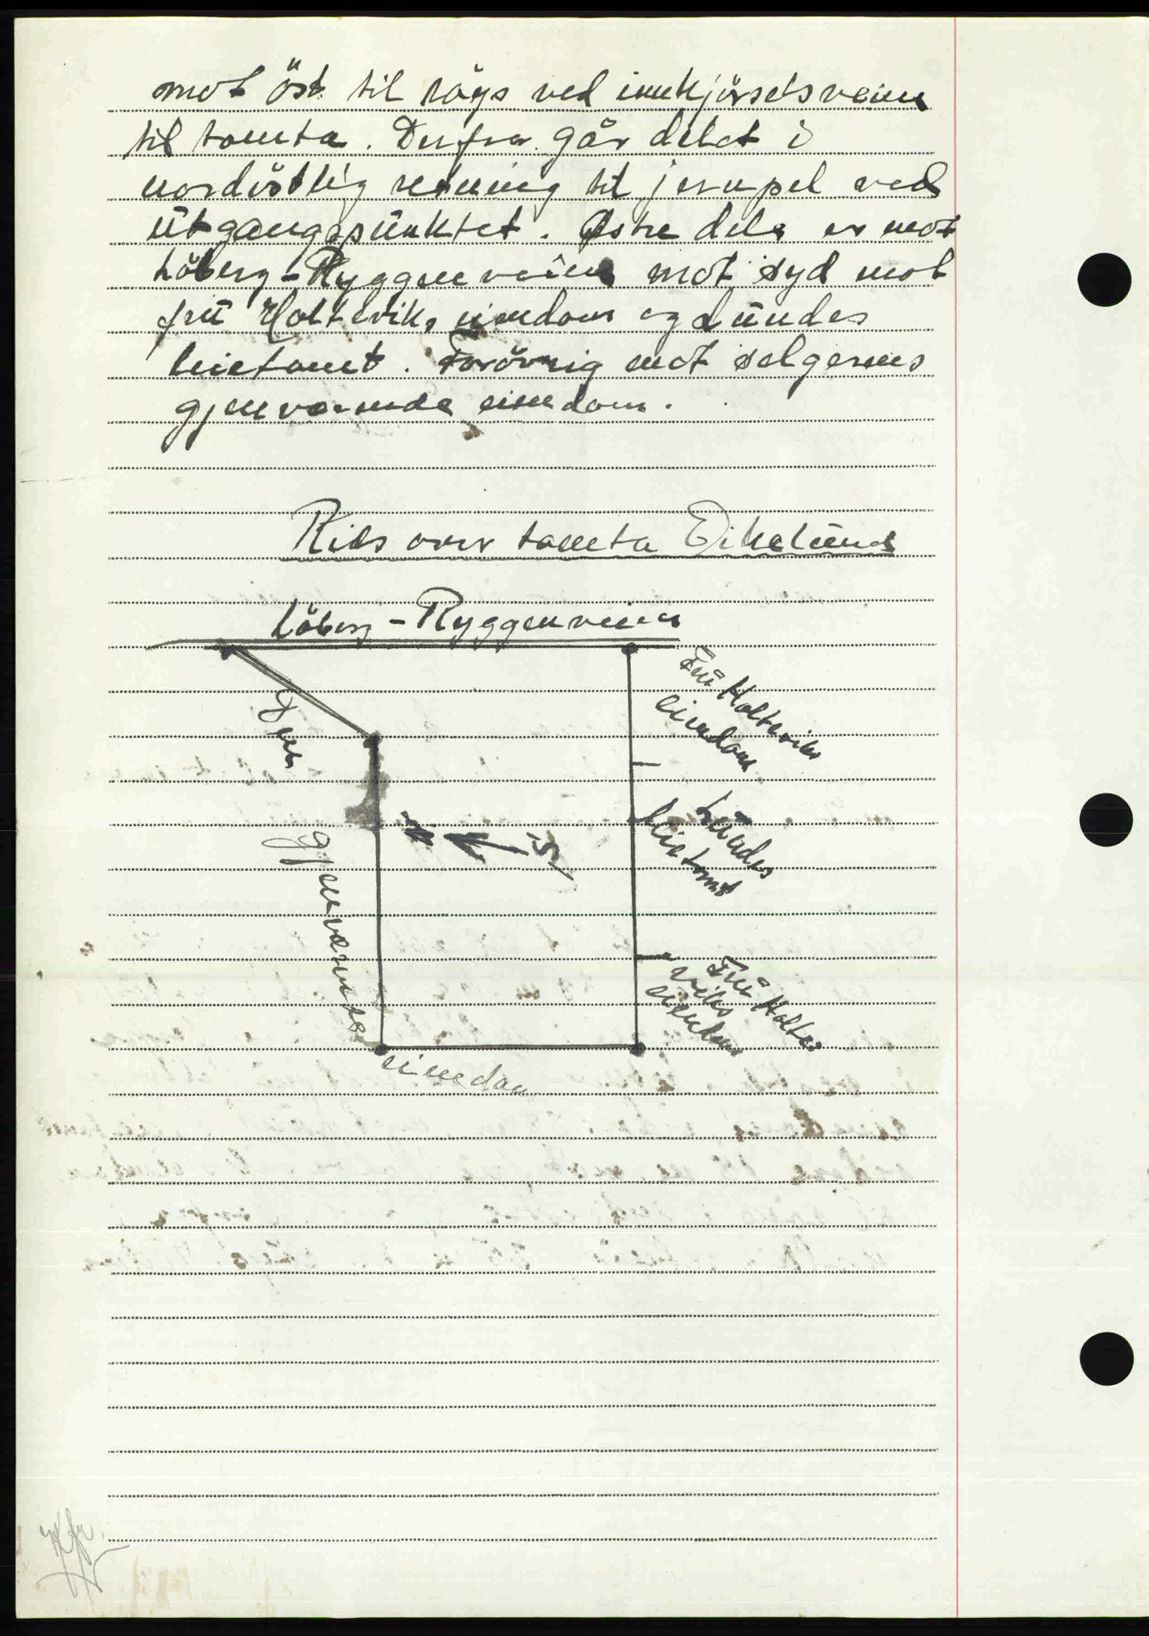 mot öst til röys ved innkjörselsveien
til tomta. Derfra går delet i
nordöstlig retning til jernpel ved
ütgangspünktet. Østre dele er mot
Löberg-Ryggenveien mot syd mot
frü Holteviks eiendom og Lündes
leietomt. Forövrig mot selgerens
gjenværende eiendom.
Riss over tomta Eikelünd
Löberg-Ryggenveien
Frü Holteviks
eiendom
Lündes
leietomt
Frü Holte-
viks
eiendom
gjenværende
eiendom
N
S